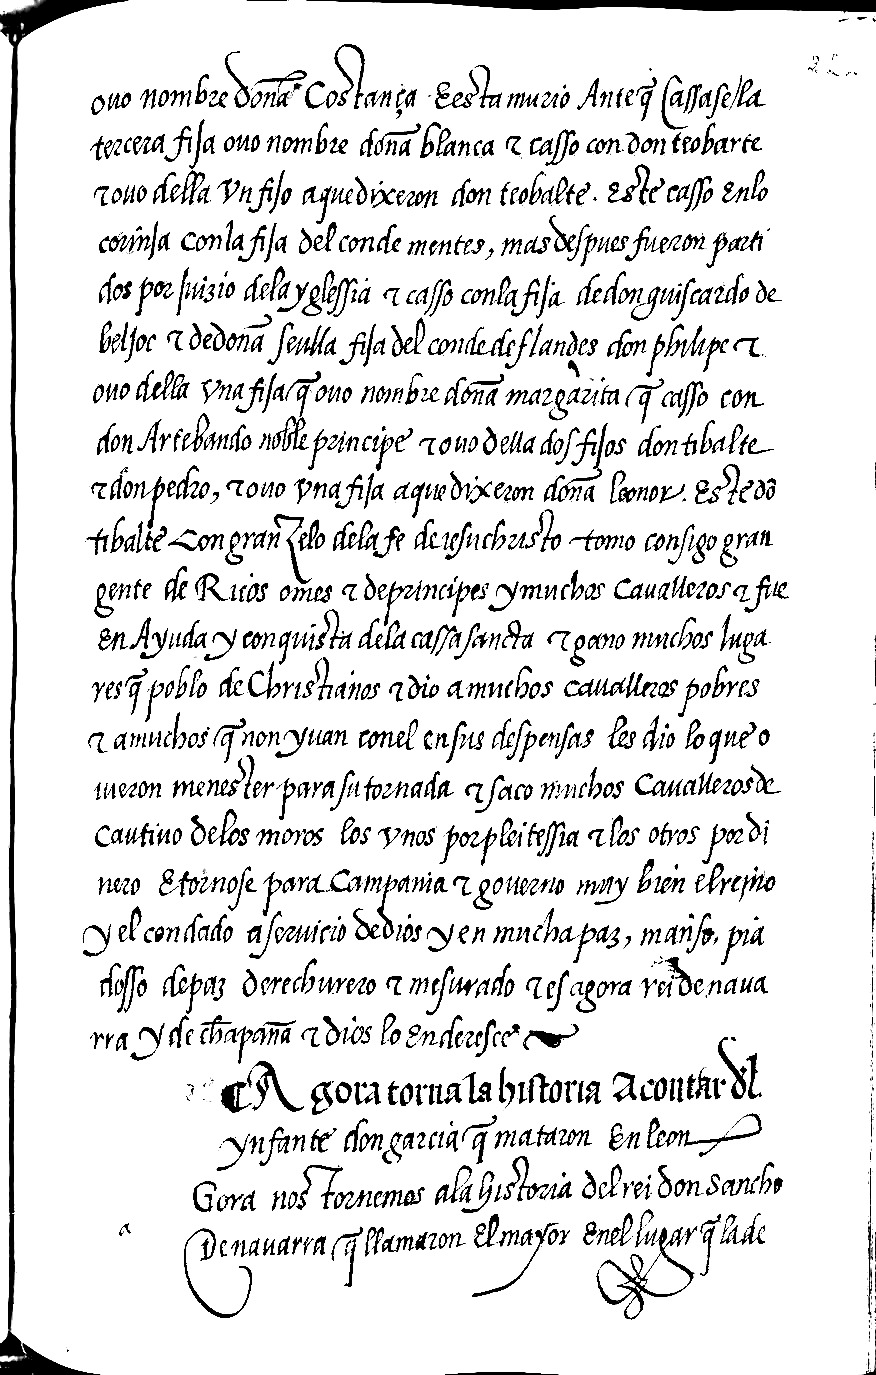 ouo nombre doña Costança Eesta murio Ante q̃ Cassase / la
tercera fija ouo nombre doña blanca τ casso con don teobarte
τ ouo della Vn fijo aque dixeron don teobalte. Este casso Enlo
corinja con la fija del conde mentes, mas despues fueron parti
dos por juizio dela yglessia τ casso con la fija de don guiscardo de
beljoc τ de doña seulla fija del conde de flandes don philipe τ
ouo della vna fija q̃ ouo nombre doña margarita q̃ casso con
don Artebando noble principe τ ouo della dos fijos don tibalte
τ don pedro, τ ouo vna fija aque dixeron doña leonor. Este dõ
tibalte Con gran Zelo dela fe de iesuchristo tomo consigo gran
gente de Ricos om̃es τ de principes y muchos Caualleros τ fue
En Ayuda y conquista dela cassa sancta τ gano muchos luga
res q̃ poblo de Christianos τ dio a muchos caualleros pobres
τ a muchos q̃ non yuan con el en sus despensas les dio lo que o
uieron menester para su tornada τ saco muchos Caualleros de
Cautiuo de los moros los vnos por pleitessia τ los otros por di
nero E tornose para Campania τ gouerno muy bien el rejno
y el condado a seruicio de dios y en mucha paz, manso, pia
dosso de paz derechurero τ mesurado τ es agora rei de naua
rra y de chãpaña τ dios lo Enderesce
Agora torna la historia A contar dl
ynfante don garcia q̃ mataron En leon
Gora nos tornemos a la historia del rei don sancho
a
De nauarra q̃ llamaron El mayor En el lugar q̃ la de